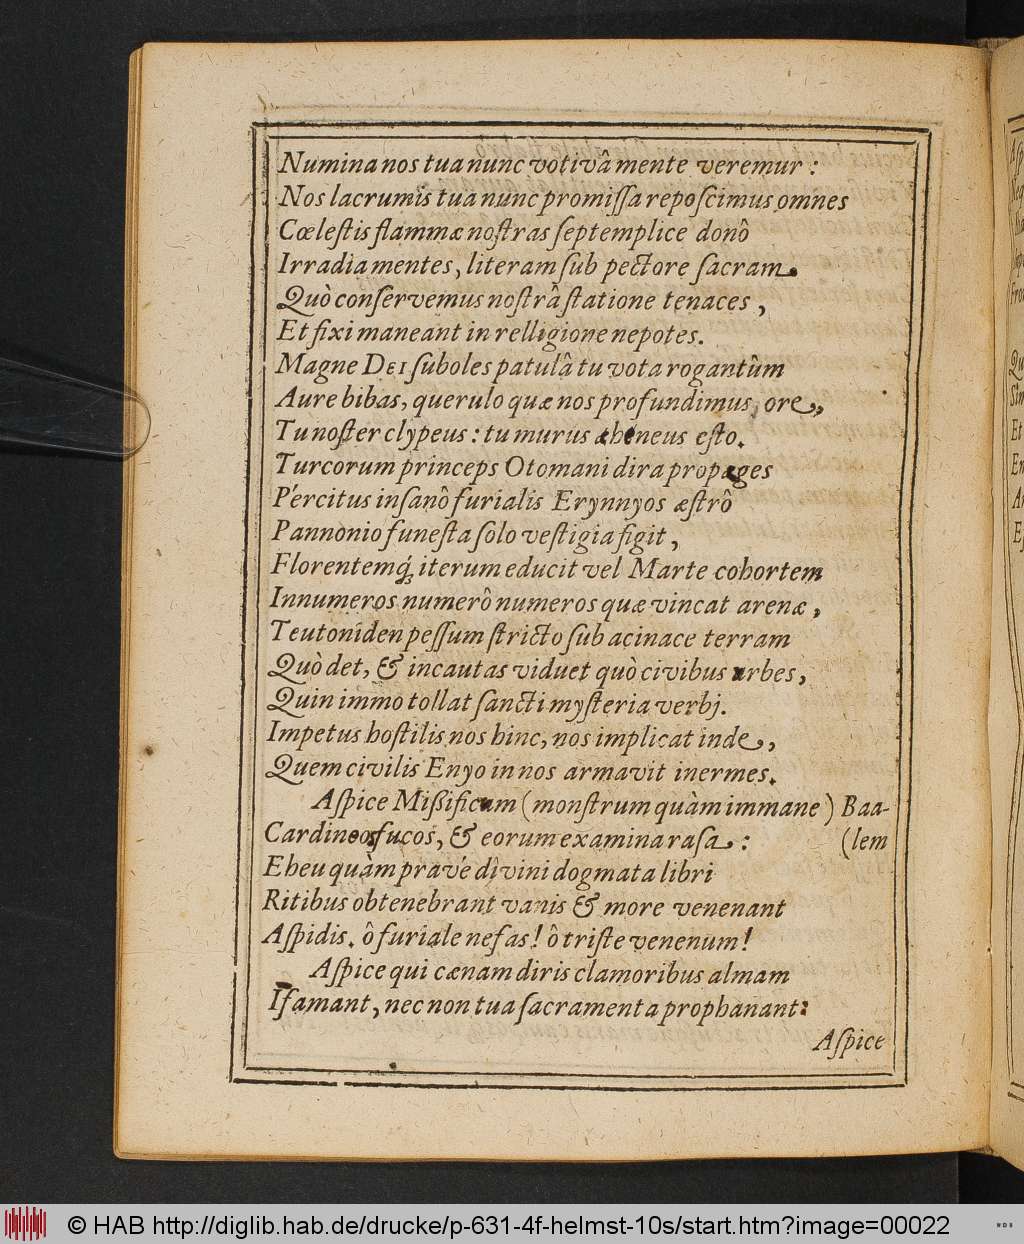 Numina nos tua nunc votivâ mente veremur :
Nos lacrumis tua nunc promiſſa repoſcimus omnes
Cœleſtis flammæ noſtras ſeptemplice donô
Irradia mentes, literam ſub pectore ſacram.
Quò conſervemus noſtrâ ſtatione tenaces ,
Et fixi maneant in relligione nepotes.
Magne DEI ſuboles patulâ tu vota rogantûm
Aure bibas, querulo quæ nos profundimus, ore,
Tu noſter clypeus : tu murus aheneus eſto.
Turcorum princeps Otomani dira propages
Pércitus inſanô furialis Erynnyos æſtrô
Pannonio funeſta ſolo veſtigia figit ,
Florentemq́; iterum educit vel Marte cohortem
Innumeros numerô numeros quæ vincat arenæ ,
Teutoniden peſſum ſtricto ſub acinace terram
Quò det, & incautas viduet quò civibus urbes,
Quin immo tollat ſancti myſteria verbj.
Impetus hoſtilis nos hinc, nos implicat inde,
Quem civilis Enyo in nos armavit inermes.
Aſpice Mißificum (monſtrum quàm immane) Baa-
Cardineos fucos, & eorum examina raſa :      (lem
Eheu quàm pravé divini dogmata libri
Ritibus obtenebrant vanis & more venenant
Aſpidis. ô furiale nefas! ô triſte venenum!
Aſpice qui cænam diris clamoribus almam
Iſamant, nec non tua ſacramenta prophanant:
Aſpice
© HAB http://diglib.hab.de/drucke/p-631-4f-helmst-10s/start.htm?image=00022